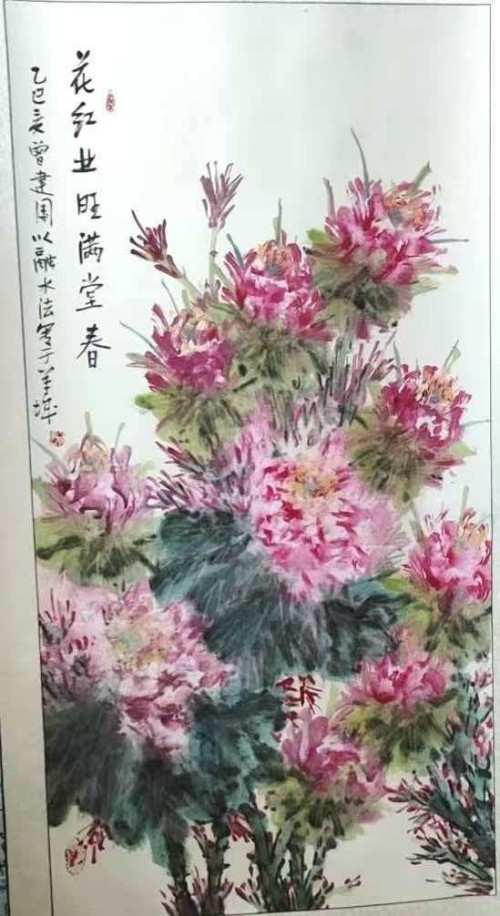 花红业旺满堂春
乙巳亥曾建国以融水法写于羊城